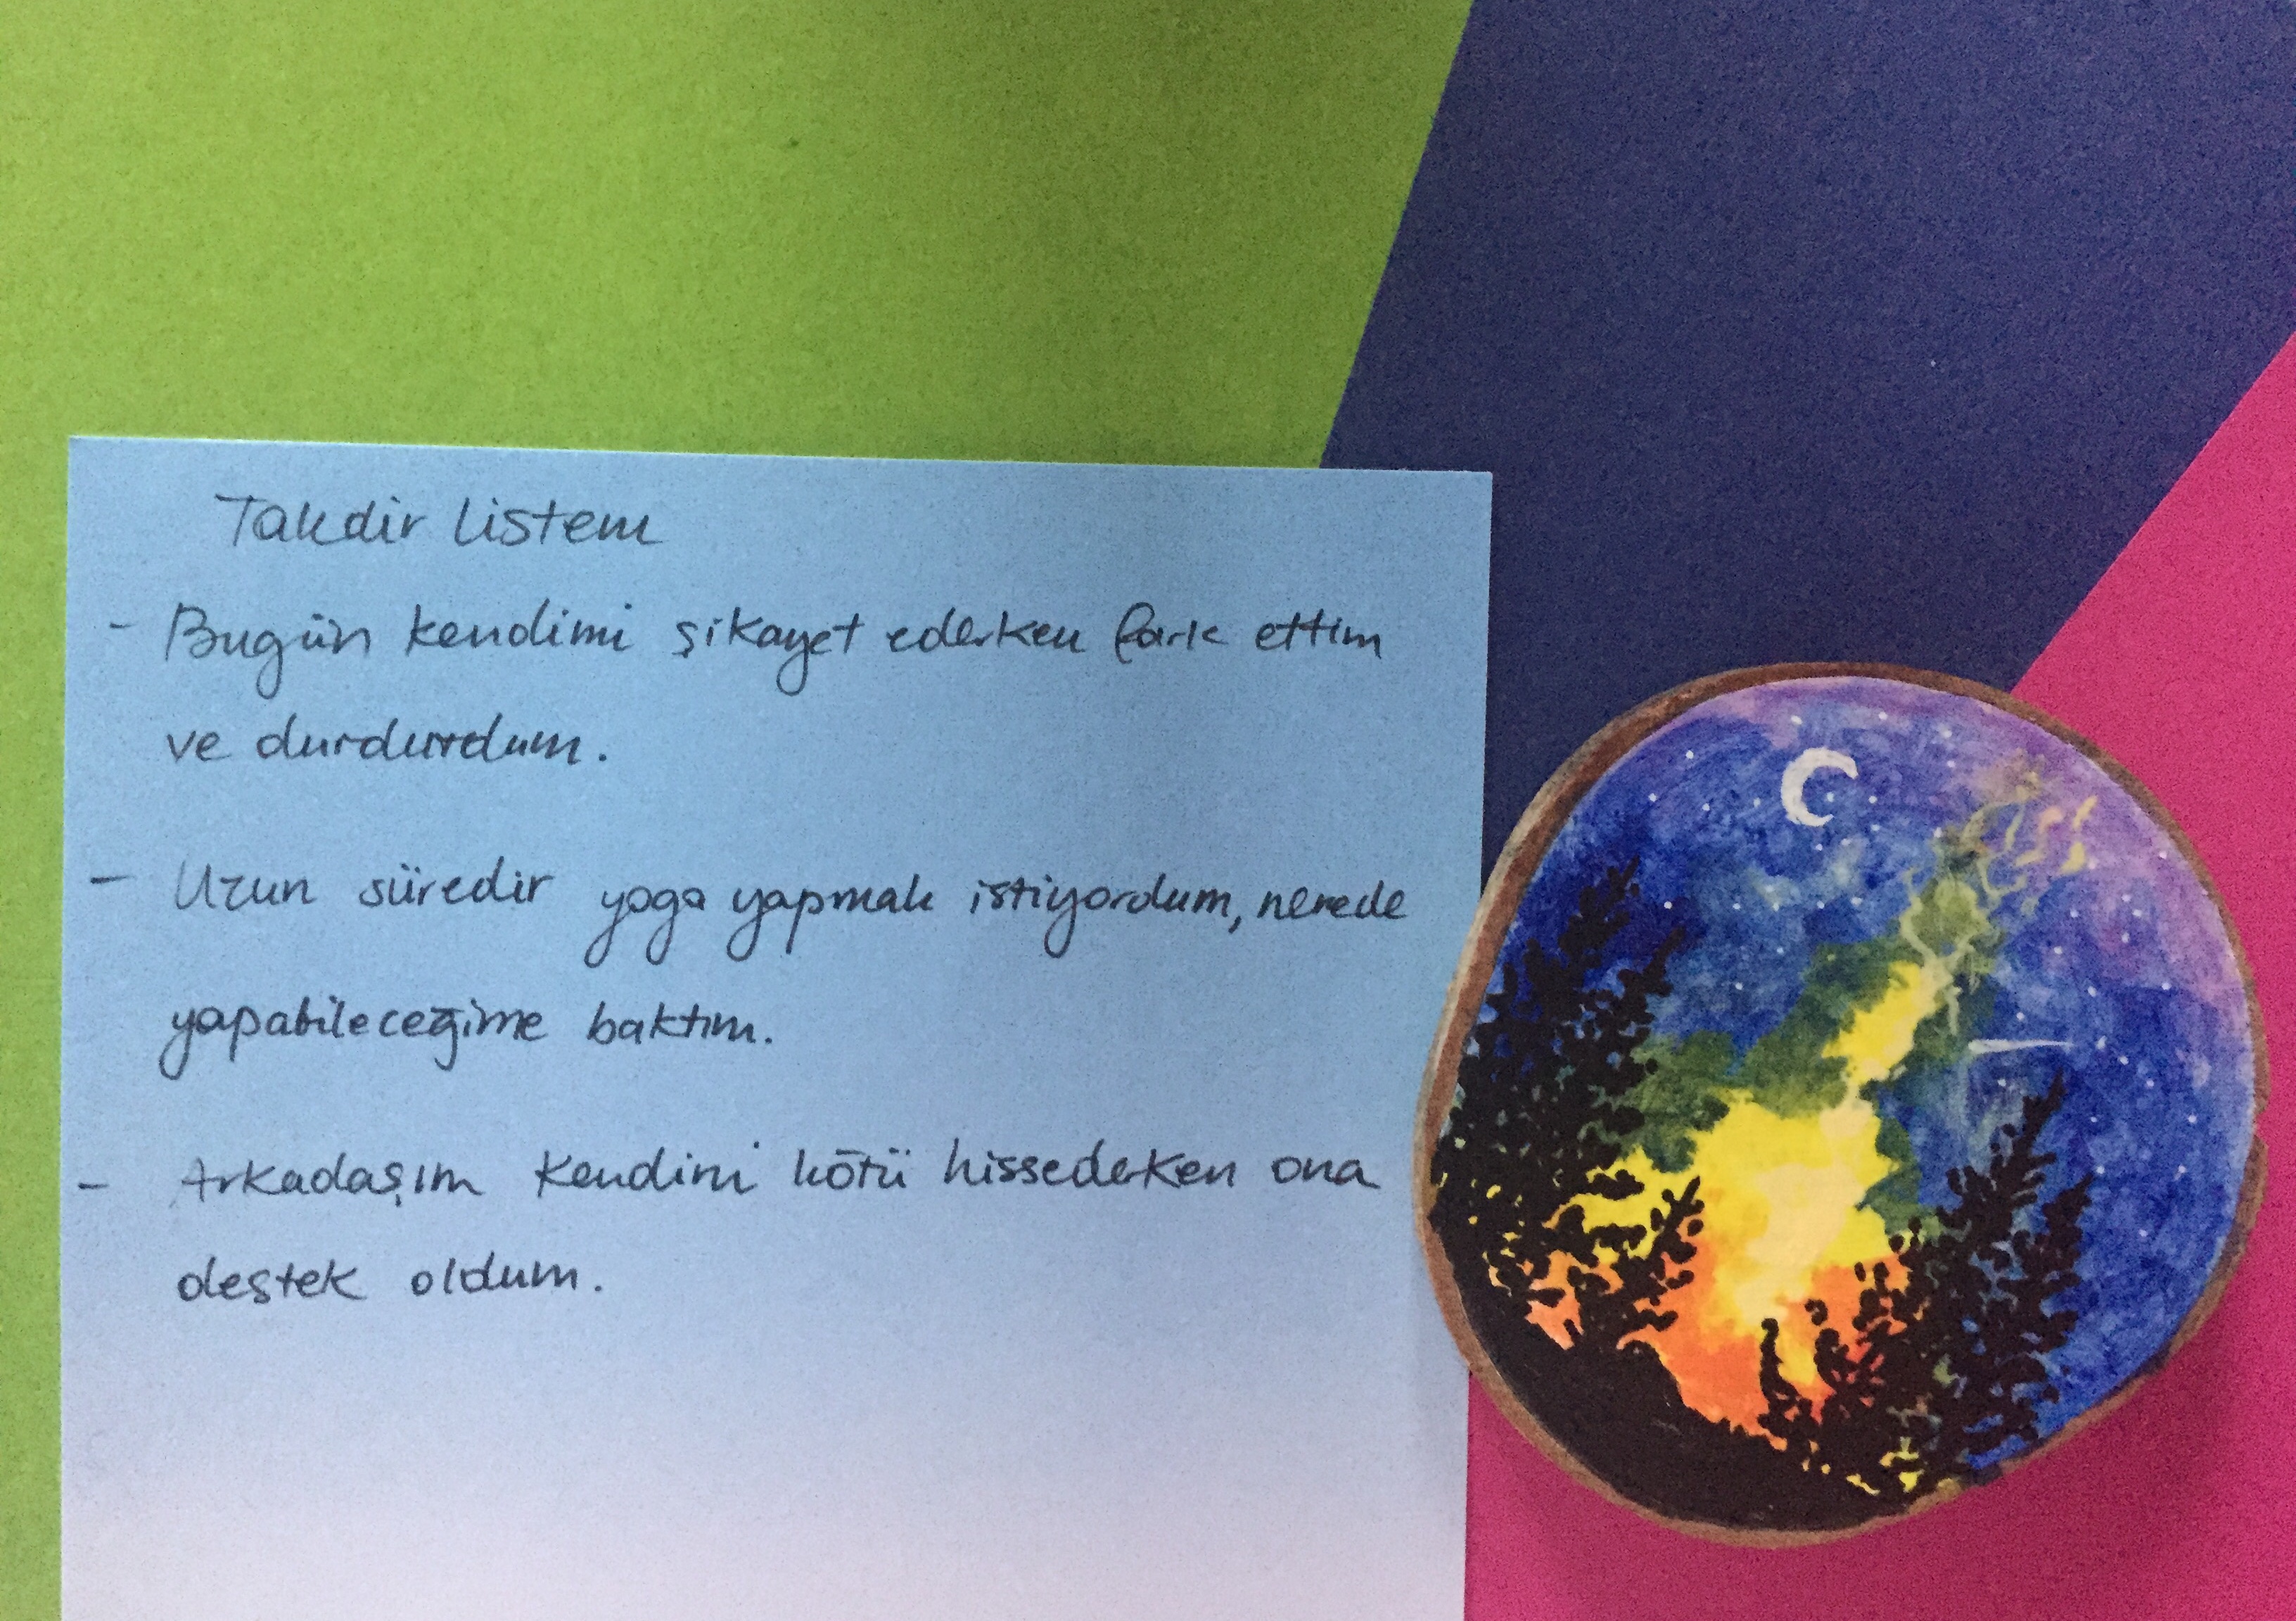 Takdir listem
- Bugün kendimi şikayet ederken fark ettim
ve durdurdum.
- Uzun süredir yoga yapmak istiyordum, nerede
yapabileceğime baktım.
- Arkadaşım kendini kötü hissederken ona
destek oldum.